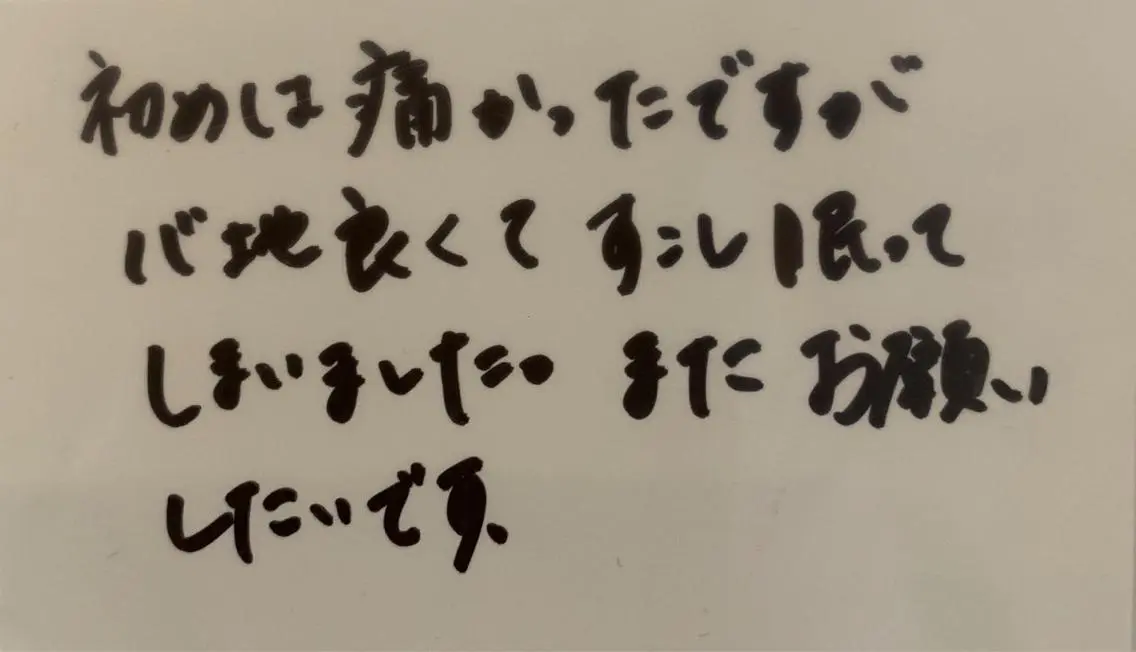 初めは痛かったですが
心地良くてすこし眠って
しまいました。またお願い
したいです、